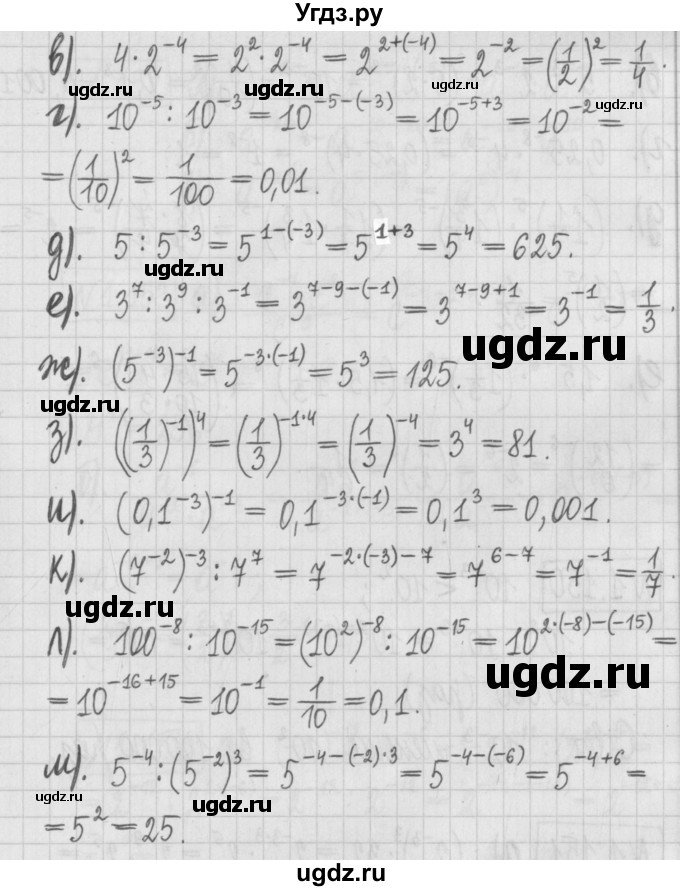 Угдз.ру
в). 4·2⁻⁴ = 2²·2⁻⁴ = 2²⁺⁽⁻⁴⁾ = 2⁻² = (1/2)² = 1/4.
ugdz.ru ugdz.ru
г). 10⁻⁵ : 10⁻³ = 10⁻⁵⁻⁽⁻³⁾ = 10⁻⁵⁺³ = 10⁻² =
= (1/10)² = 1/100 = 0,01.
д). 5 : 5⁻³ = 5¹⁻⁽⁻³⁾ = 5¹⁺³ = 5⁴ = 625.
ugdz.ru
е). 3⁷ : 3⁹ : 3⁻¹ = 3⁷⁻⁹⁻⁽⁻¹⁾ = 3⁷⁻⁹⁺¹ = 3⁻¹ = 1/3.
ugdz.ru
ж). (5⁻³)⁻¹ = 5⁻³·⁽⁻¹⁾ = 5³ = 125.
ugdz.ru
з). ((1/3)⁻¹)⁴ = (1/3)⁻¹·⁴ = (1/3)⁻⁴ = 3⁴ = 81.
и). (0,1⁻³)⁻¹ = 0,1⁻³·⁽⁻¹⁾ = 0,1³ = 0,001.
к). (7⁻²)⁻³ : 7⁷ = 7⁻²·⁽⁻³⁾⁻⁷ = 7⁶⁻⁷ = 7⁻¹ = 1/7.
ugdz.ru
л). 100⁻⁸ : 10⁻¹⁵ = (10²)⁻⁸ : 10⁻¹⁵ = 10²·⁽⁻⁸⁾⁻⁽⁻¹⁵⁾ =
ugdz.ru
= 10⁻¹⁶⁺¹⁵ = 10⁻¹ = 1/10 = 0,1.
м). 5⁻⁴ : (5⁻²)³ = 5⁻⁴⁻⁽⁻²⁾·³ = 5⁻⁴⁻⁽⁻⁶⁾ = 5⁻⁴⁺⁶ =
ugdz.ru ugdz.ru ugdz.ru
= 5² = 25.
ugdz.ru